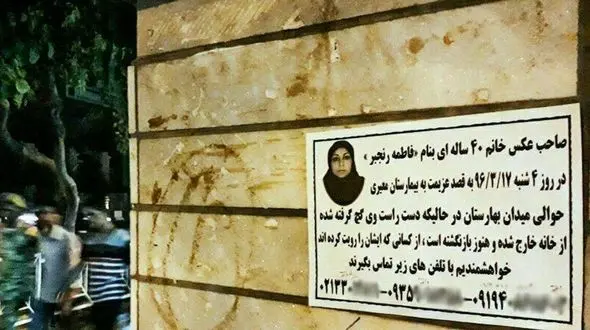 صاحب عکس خانم ۴۰ ساله ای بنام «فاطمه رنجبر»
در روز ۴ شنبه ۹۶/۳/۱۷ به قصد عزیمت به بیمارستان معیری
حوالی میدان بهارستان در حالیکه دست راست وی گچ گرفته شده
از خانه خارج شده و هنوز بازنگشته است ، از کسانی که ایشان را رویت کرده اند
خواهشمندیم با تلفن های زیر تماس بگیرند
۰۲۱۳۳ -۰۹۳۵ -۰۹۱۹۴